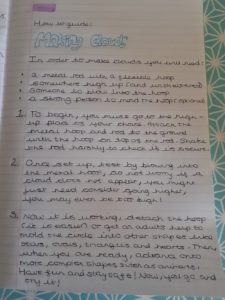 How to guide:
Making Clouds
In order to make clouds you will need:
• a metal rod with a flexible hoop
• somewhere high up (and unsheltered)
• someone to blow into the hoop
• a strong person to mold the hoop (optional)
1. To begin, you must go to the high-
up place in your chosen area. Attach the
metal hoop and rod to the ground
with the hoop on top of the rod. Shake
the rod harshly to check it is secure.
2. Once set up, test by blowing into
the metal hoop, do not worry if a
cloud does not appear, you might
just need consider going higher,
you may even be too high!
3. Now it is working, detach the hoop
(it is easier) or get an adults help to
mold the circle into other shapes like
stars, ovals, triangles and hearts. Then,
when you are ready, advance onto
more complex shapes such as animals.
Have fun and stay safe! Now, you go and
try it!